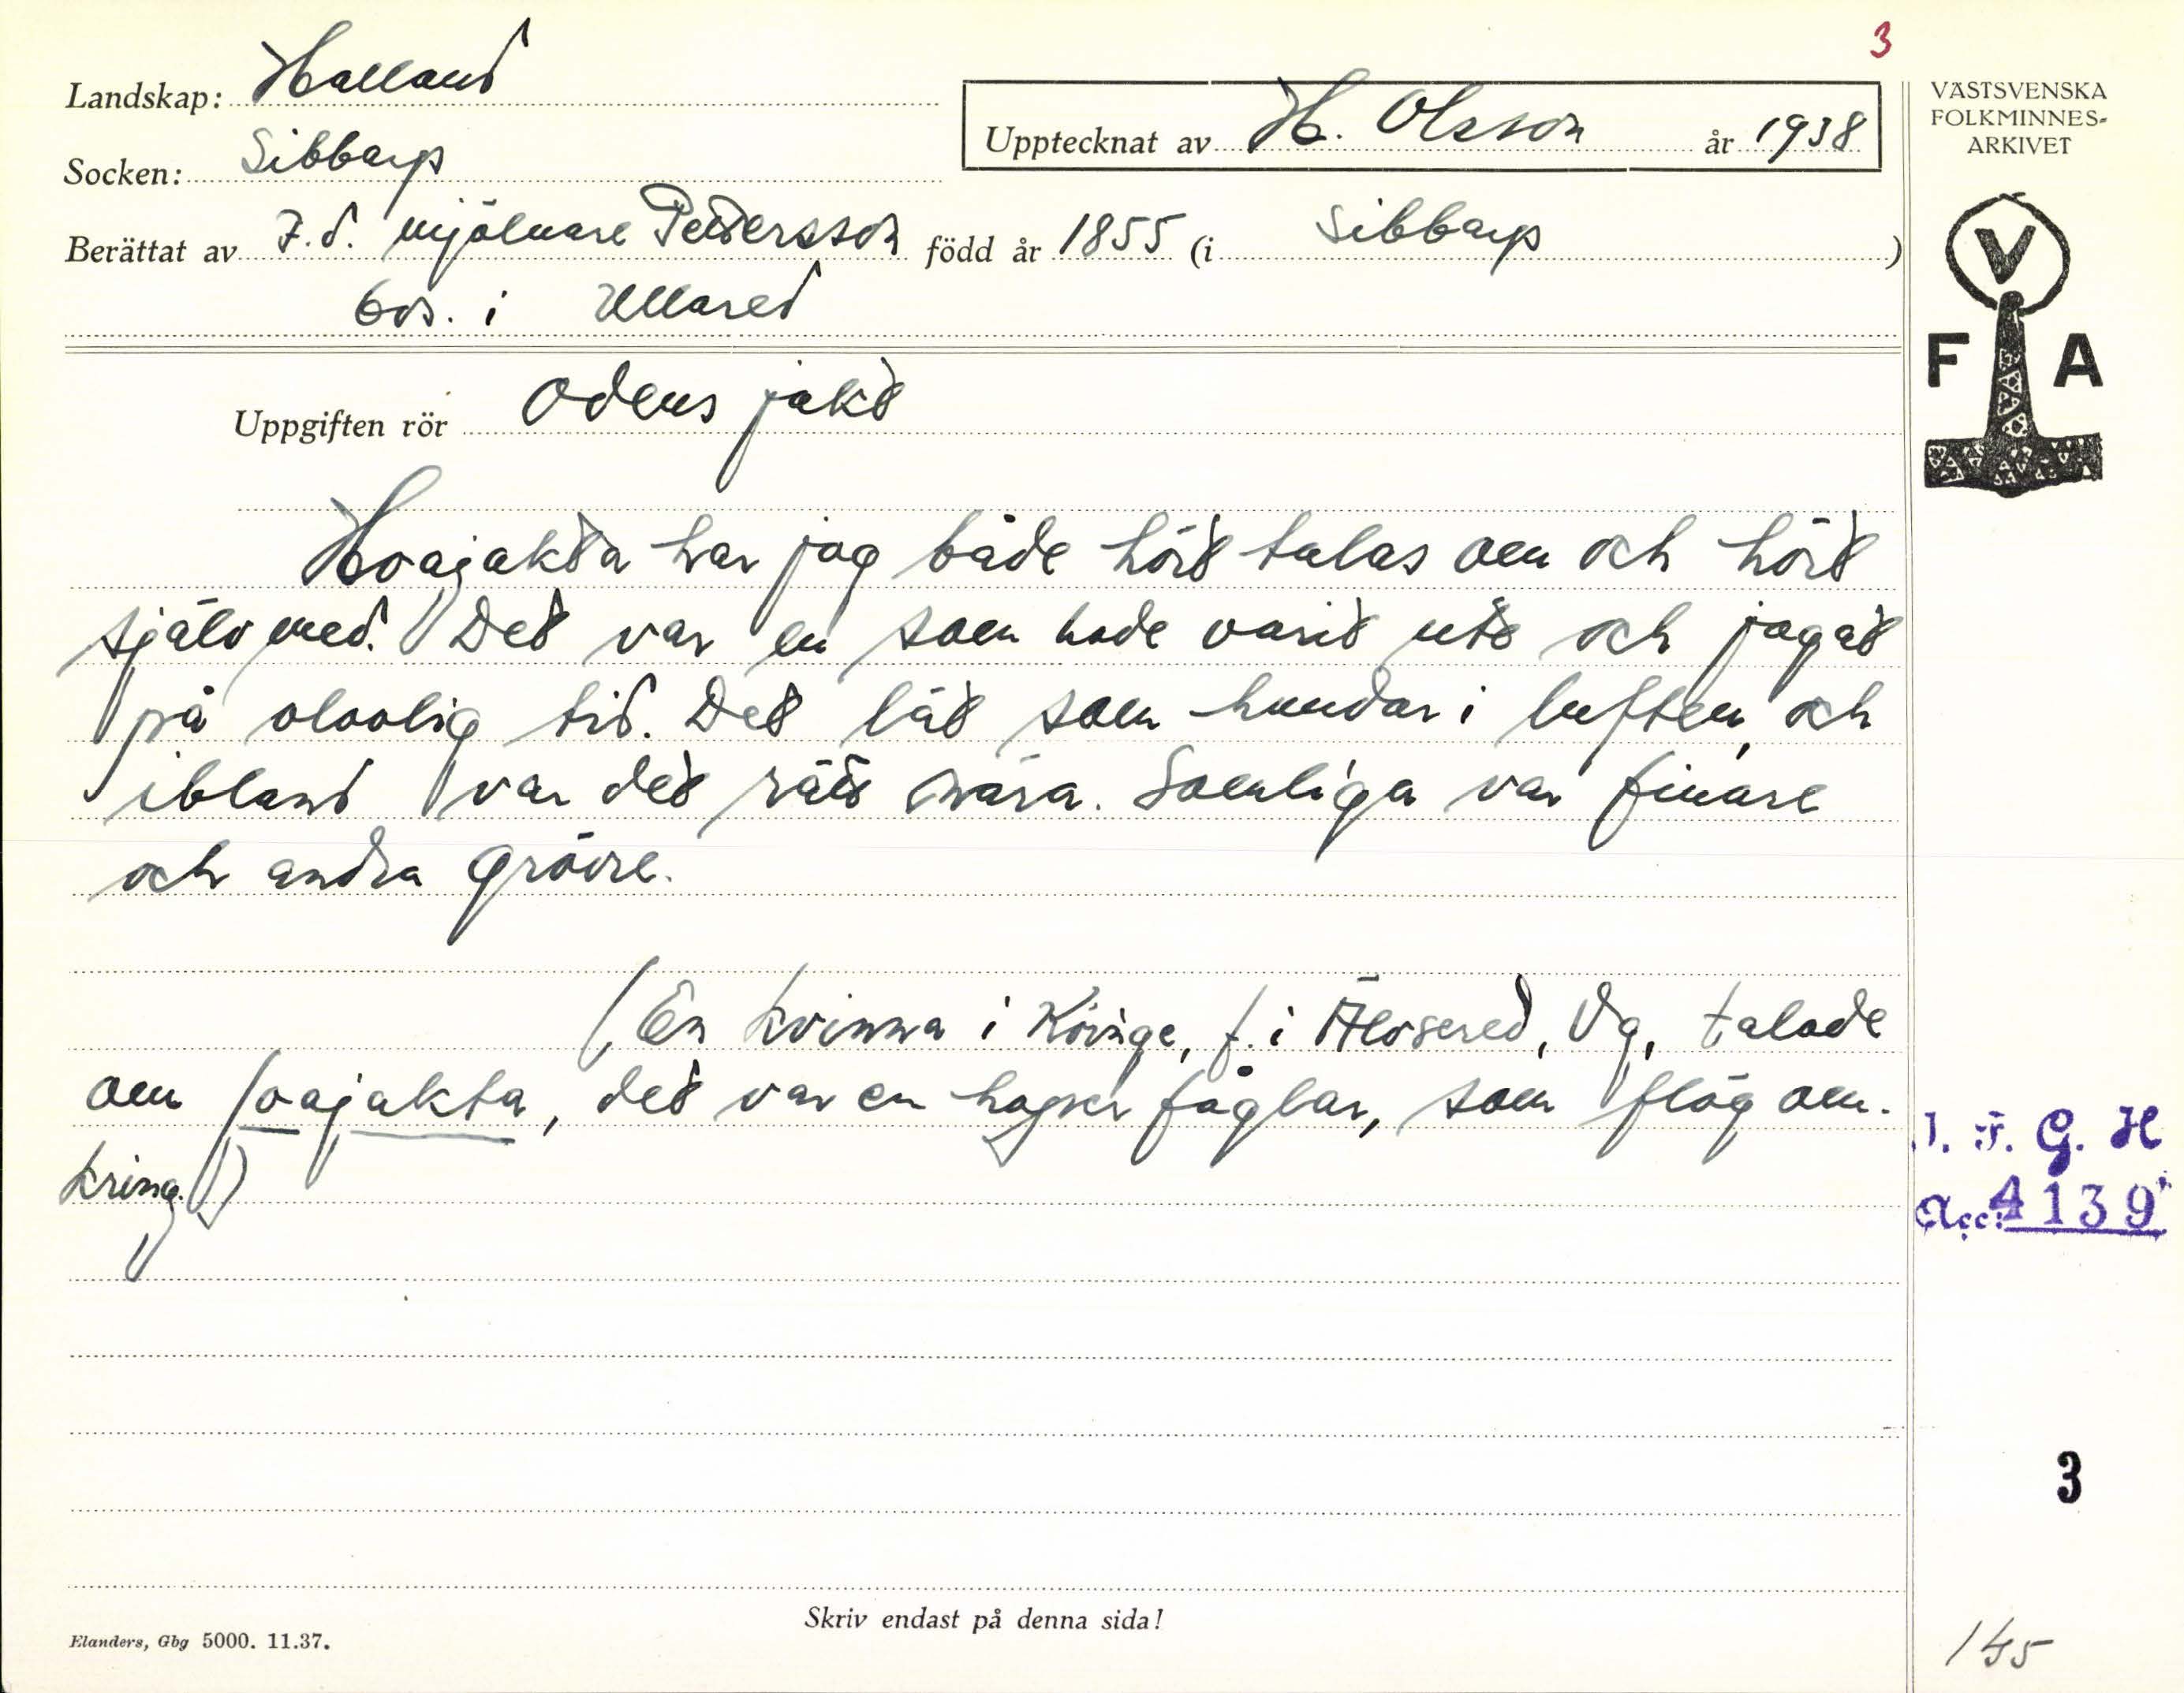 3
Landskap: Halland
Upptecknat av H. Olsson år 1938
Socken: Sibbarp
Berättat av F.d. mjölnare Pettersson född år 1855 (i Sibbarp)
bos. i Ullared
VÄSTSVENSKA
FOLKMINNES-
ARKIVET
V
F A
Uppgiften rör Odens jakt
Hoajakta har jag både hört talas om och hört
själv med. Det var en som hade varit ute och jagat
på olovlig tid. Det lät som hundar i luften, och
ibland var det rätt nära. Somliga var finare
och andra grövre.
(En kvinna i Köinge, f. i Älvsered, Vg, talade
om oajakta, det var en hoper fåglar, som flög om-
kring.)
I. F. G. H
Acc: 4139
3
Skriv endast på denna sida!
Elanders, Gbg 5000. 11.37.
145